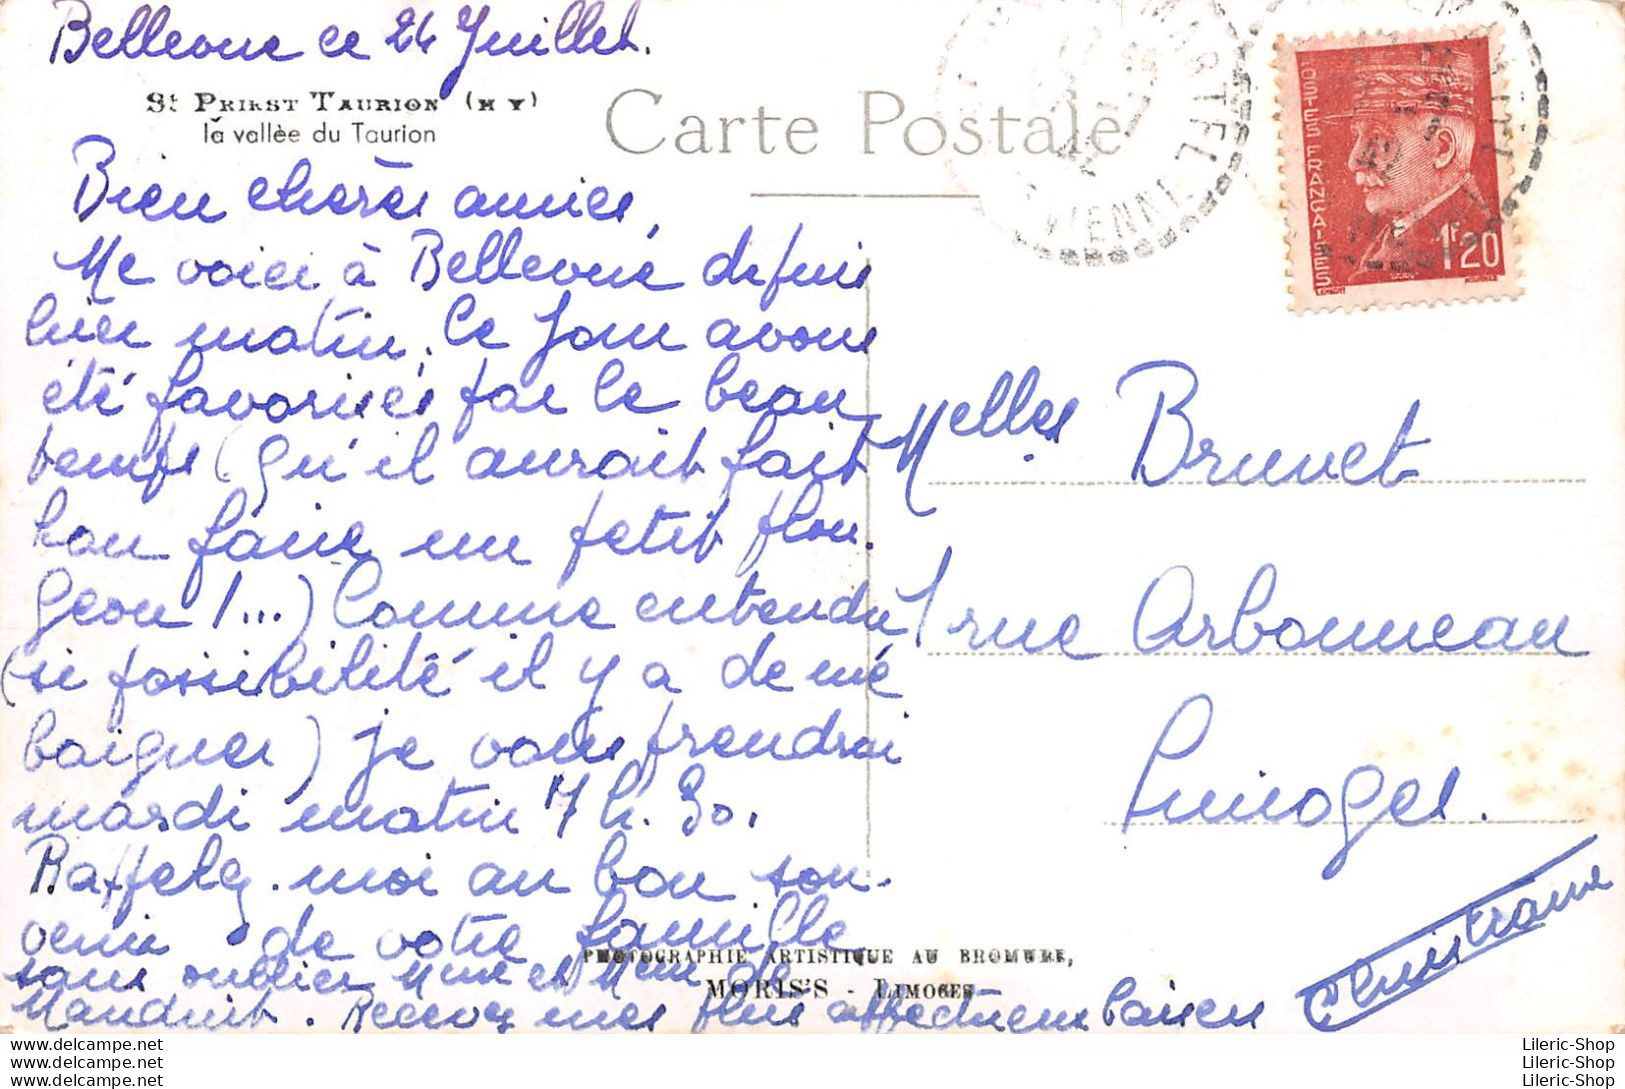 Bellevue ce 24 Juillet.
St PRIEST TAURION (H V)
la vallèe du Taurion
Carte Postale
POSTES FRANÇAISES
1F20
VIENNE
Bien chères amies,
Me voici à Bellevue depuis
hier matin. Ce jour avons
été favorisés par le beau
temps (qu'il aurait fait
bon faire un petit plon-
geon !...) Comme entendu
(si possibilité il y a de me
baigner) je vous prendrai
mardi matin 7 h. 30.
Rappelez-moi au bon sou-
venir de votre famille
sans oublier Mme et Mr de
Mandruit. Recevez mes plus affectueux baisers
Melles Brunet
1 rue Arbonneau
Limoges.
PHOTOGRAPHIE ARTISTIQUE AU BROMURE,
MORIS'S - LIMOGES
Lileric-Shop
Lileric-Shop
Lileric-Shop
Lileric-Shop
Lileric-Shop
Lileric-Shop